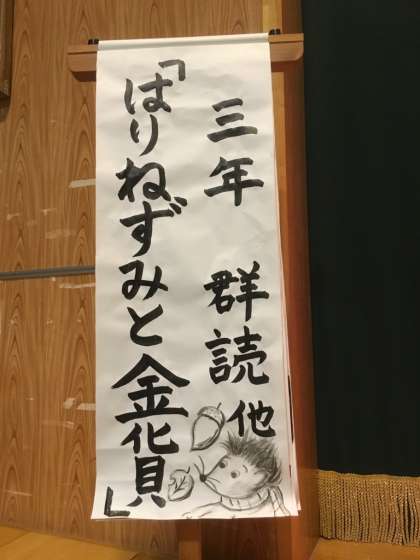 三年 群読 他
「はりねずみと金貨」